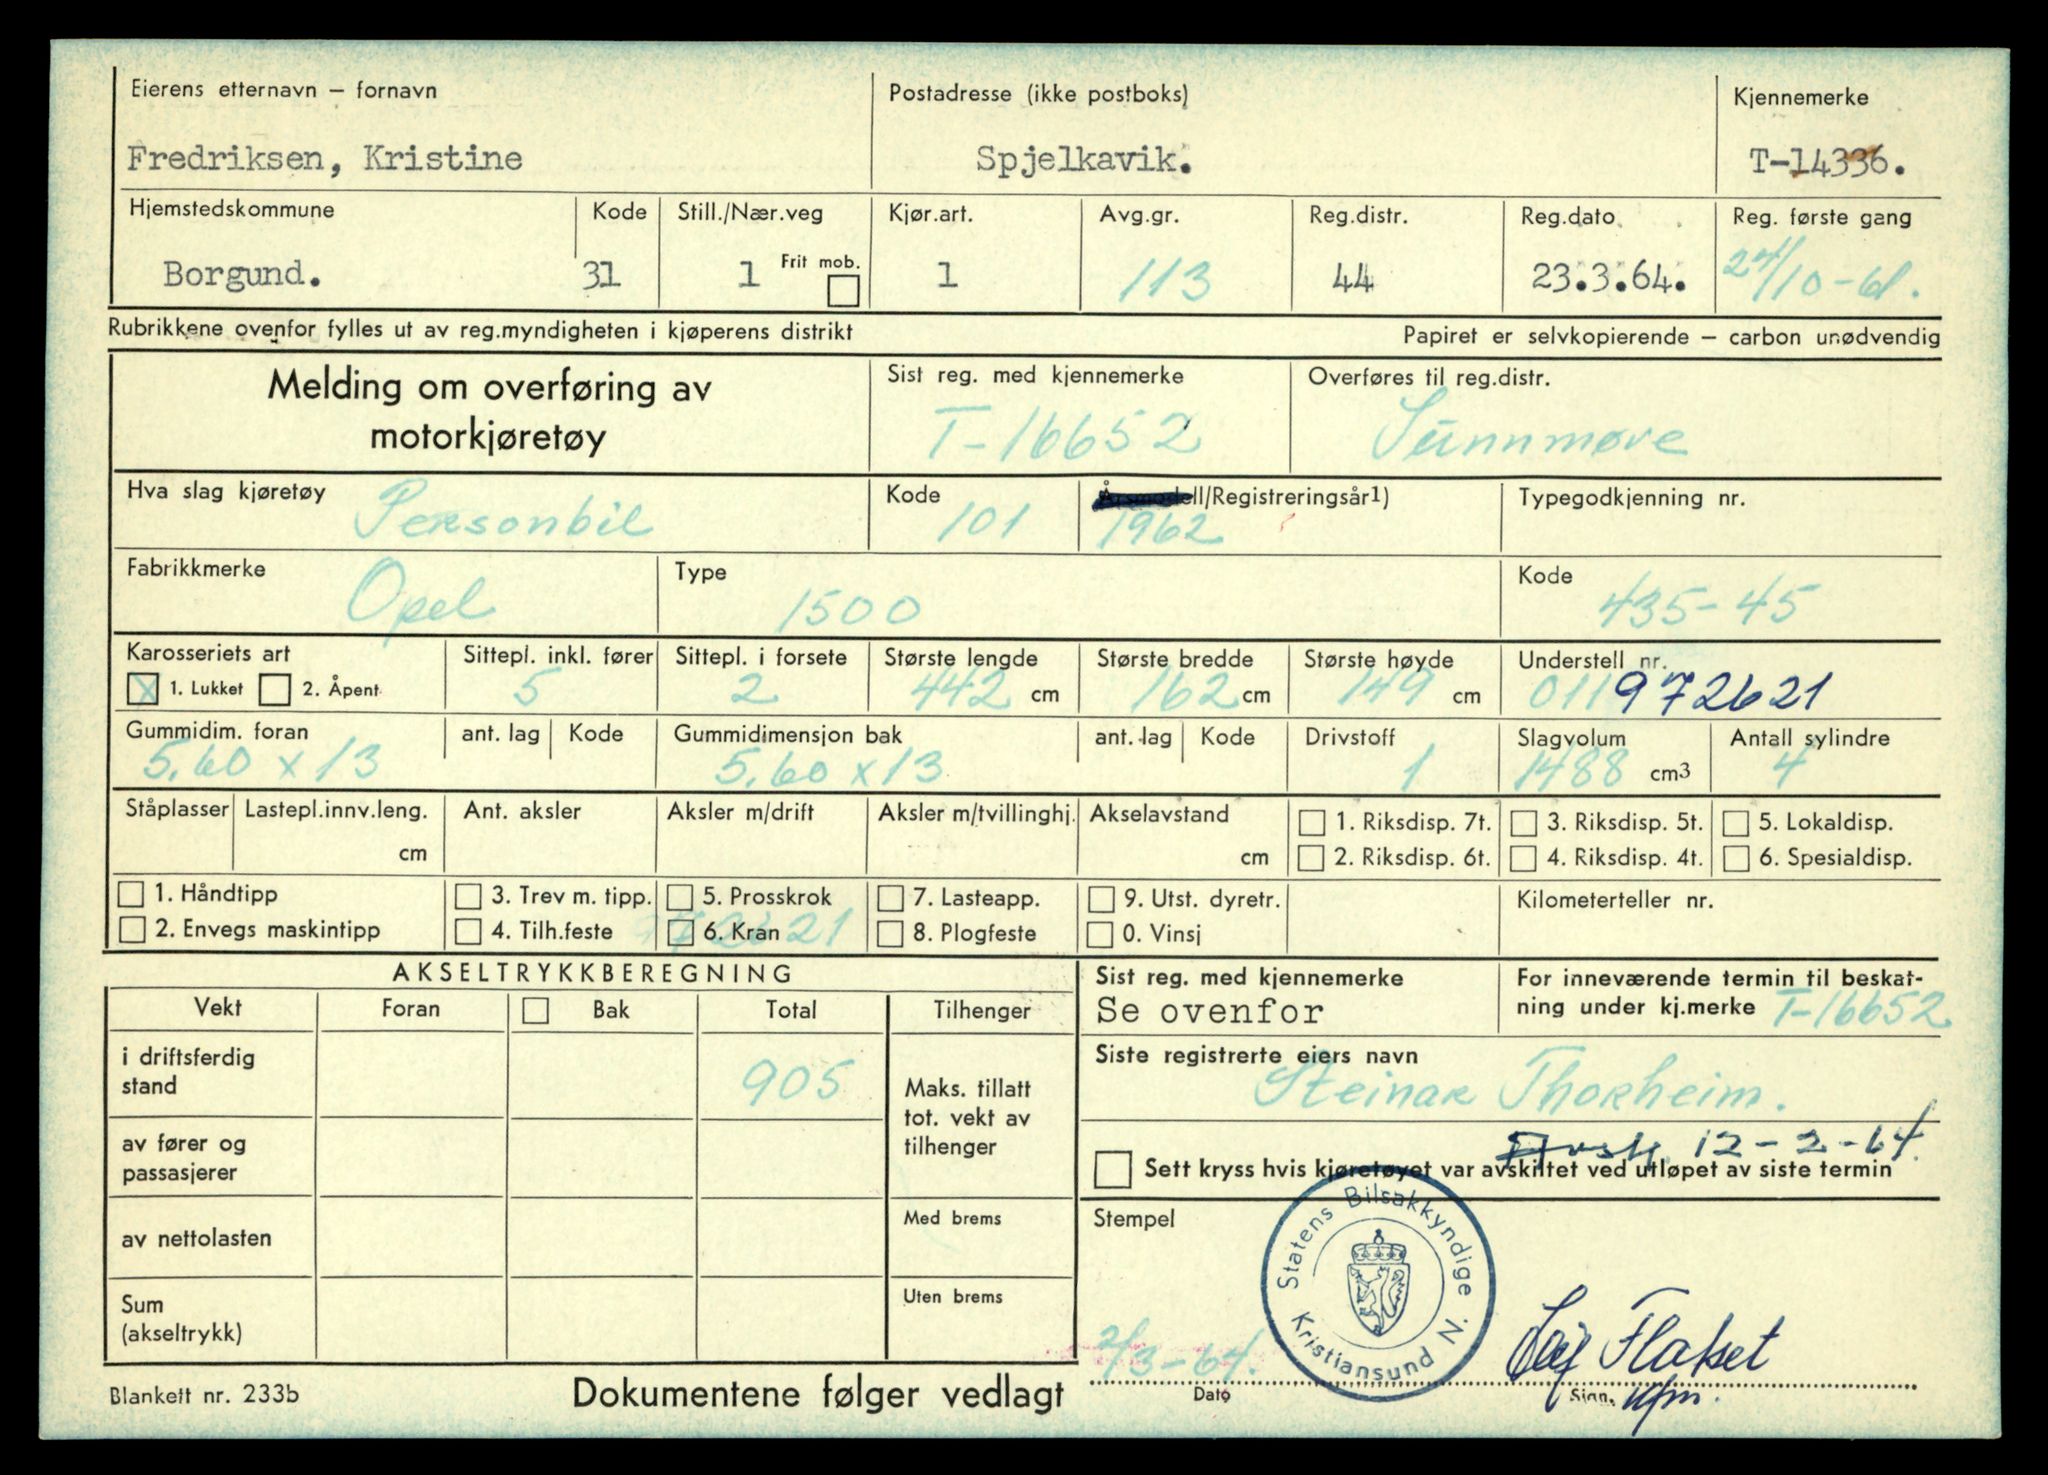 Eierens etternavn – fornavn Postadresse (ikke postboks) Kjennemerke
Fredriksen, Kristine Spjelkavik. T-14336.
Hjemstedskommune Kode Still./Nær.veg Kjør.art. Avg.gr. Reg.distr. Reg.dato Reg. første gang
Borgund. 31 1 Frit mob. 1 113 44 23.3.64. 24/10-61.
Rubrikkene ovenfor fylles ut av reg.myndigheten i kjøperens distrikt Papiret er selvkopierende – carbon unødvendig
Melding om overføring av Sist reg. med kjennemerke Overføres til reg.distr.
motorkjøretøy T-16652 Sunnmøre
Hva slag kjøretøy Kode Årsmodell/Registreringsår1) Typegodkjenning nr.
Personbil 101 1962
Fabrikkmerke Type Kode
Opel 1500 435-45
Karosseriets art Sittepl. inkl. fører Sittepl. i forsete Største lengde Største bredde Største høyde Understell nr.
X 1. Lukket 2. Åpent 5 2 442 cm 162 cm 149 cm 011972621
Gummidim. foran ant. lag Kode Gummidimensjon bak ant. lag Kode Drivstoff Slagvolum Antall sylindre
5.60 x 13 5.60 x 13 1 1488 cm3 4
Ståplasser Lastepl.innv.leng. Ant. aksler Aksler m/drift Aksler m/tvillinghj. Akselavstand 1. Riksdisp. 7t. 3. Riksdisp. 5t. 5. Lokaldisp.
cm cm 2. Riksdisp. 6t. 4. Riksdisp. 4t. 6. Spesialdisp.
1. Håndtipp 3. Trev m. tipp. 5. Prosskrok 7. Lasteapp. 9. Utst. dyretr. Kilometerteller nr.
2. Envegs maskintipp 4. Tilh.feste 6. Kran 972621 8. Plogfeste 0. Vinsj
AKSELTRYKKBEREGNING Sist reg. med kjennemerke For inneværende termin til beskat-
Vekt Foran Bak Total Tilhenger Se ovenfor ning under kj.merke T-16652
i driftsferdig stand 905 Maks. tillatt tot. vekt av tilhenger Siste registrerte eiers navn
Steinar Thorheim.
av fører og passasjerer Avsk. 12-2-64.
Sett kryss hvis kjøretøyet var avskiltet ved utløpet av siste termin
av nettolasten Med brems Stempel
Statens Bilsakkyndige
Kristiansund N.
Sum (akseltrykk) Uten brems
2/3-64. Flakset
Dato Sign.
Blankett nr. 233b Dokumentene følger vedlagt